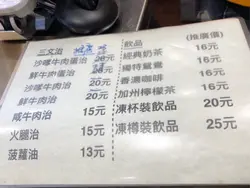 三文治
沙嗲牛肉蛋治
鮮牛肉蛋治
沙嗲牛肉治 20元
鮮牛肉治 20元
咸牛肉治 15元
火腿治 15元
菠蘿油 13元
飲品 (推廣價)
經典奶茶 16元
獨特鴛鴦 16元
香濃咖啡 16元
加州檸檬茶 16元
凍杯裝飲品 20元
凍樽裝飲品 25元